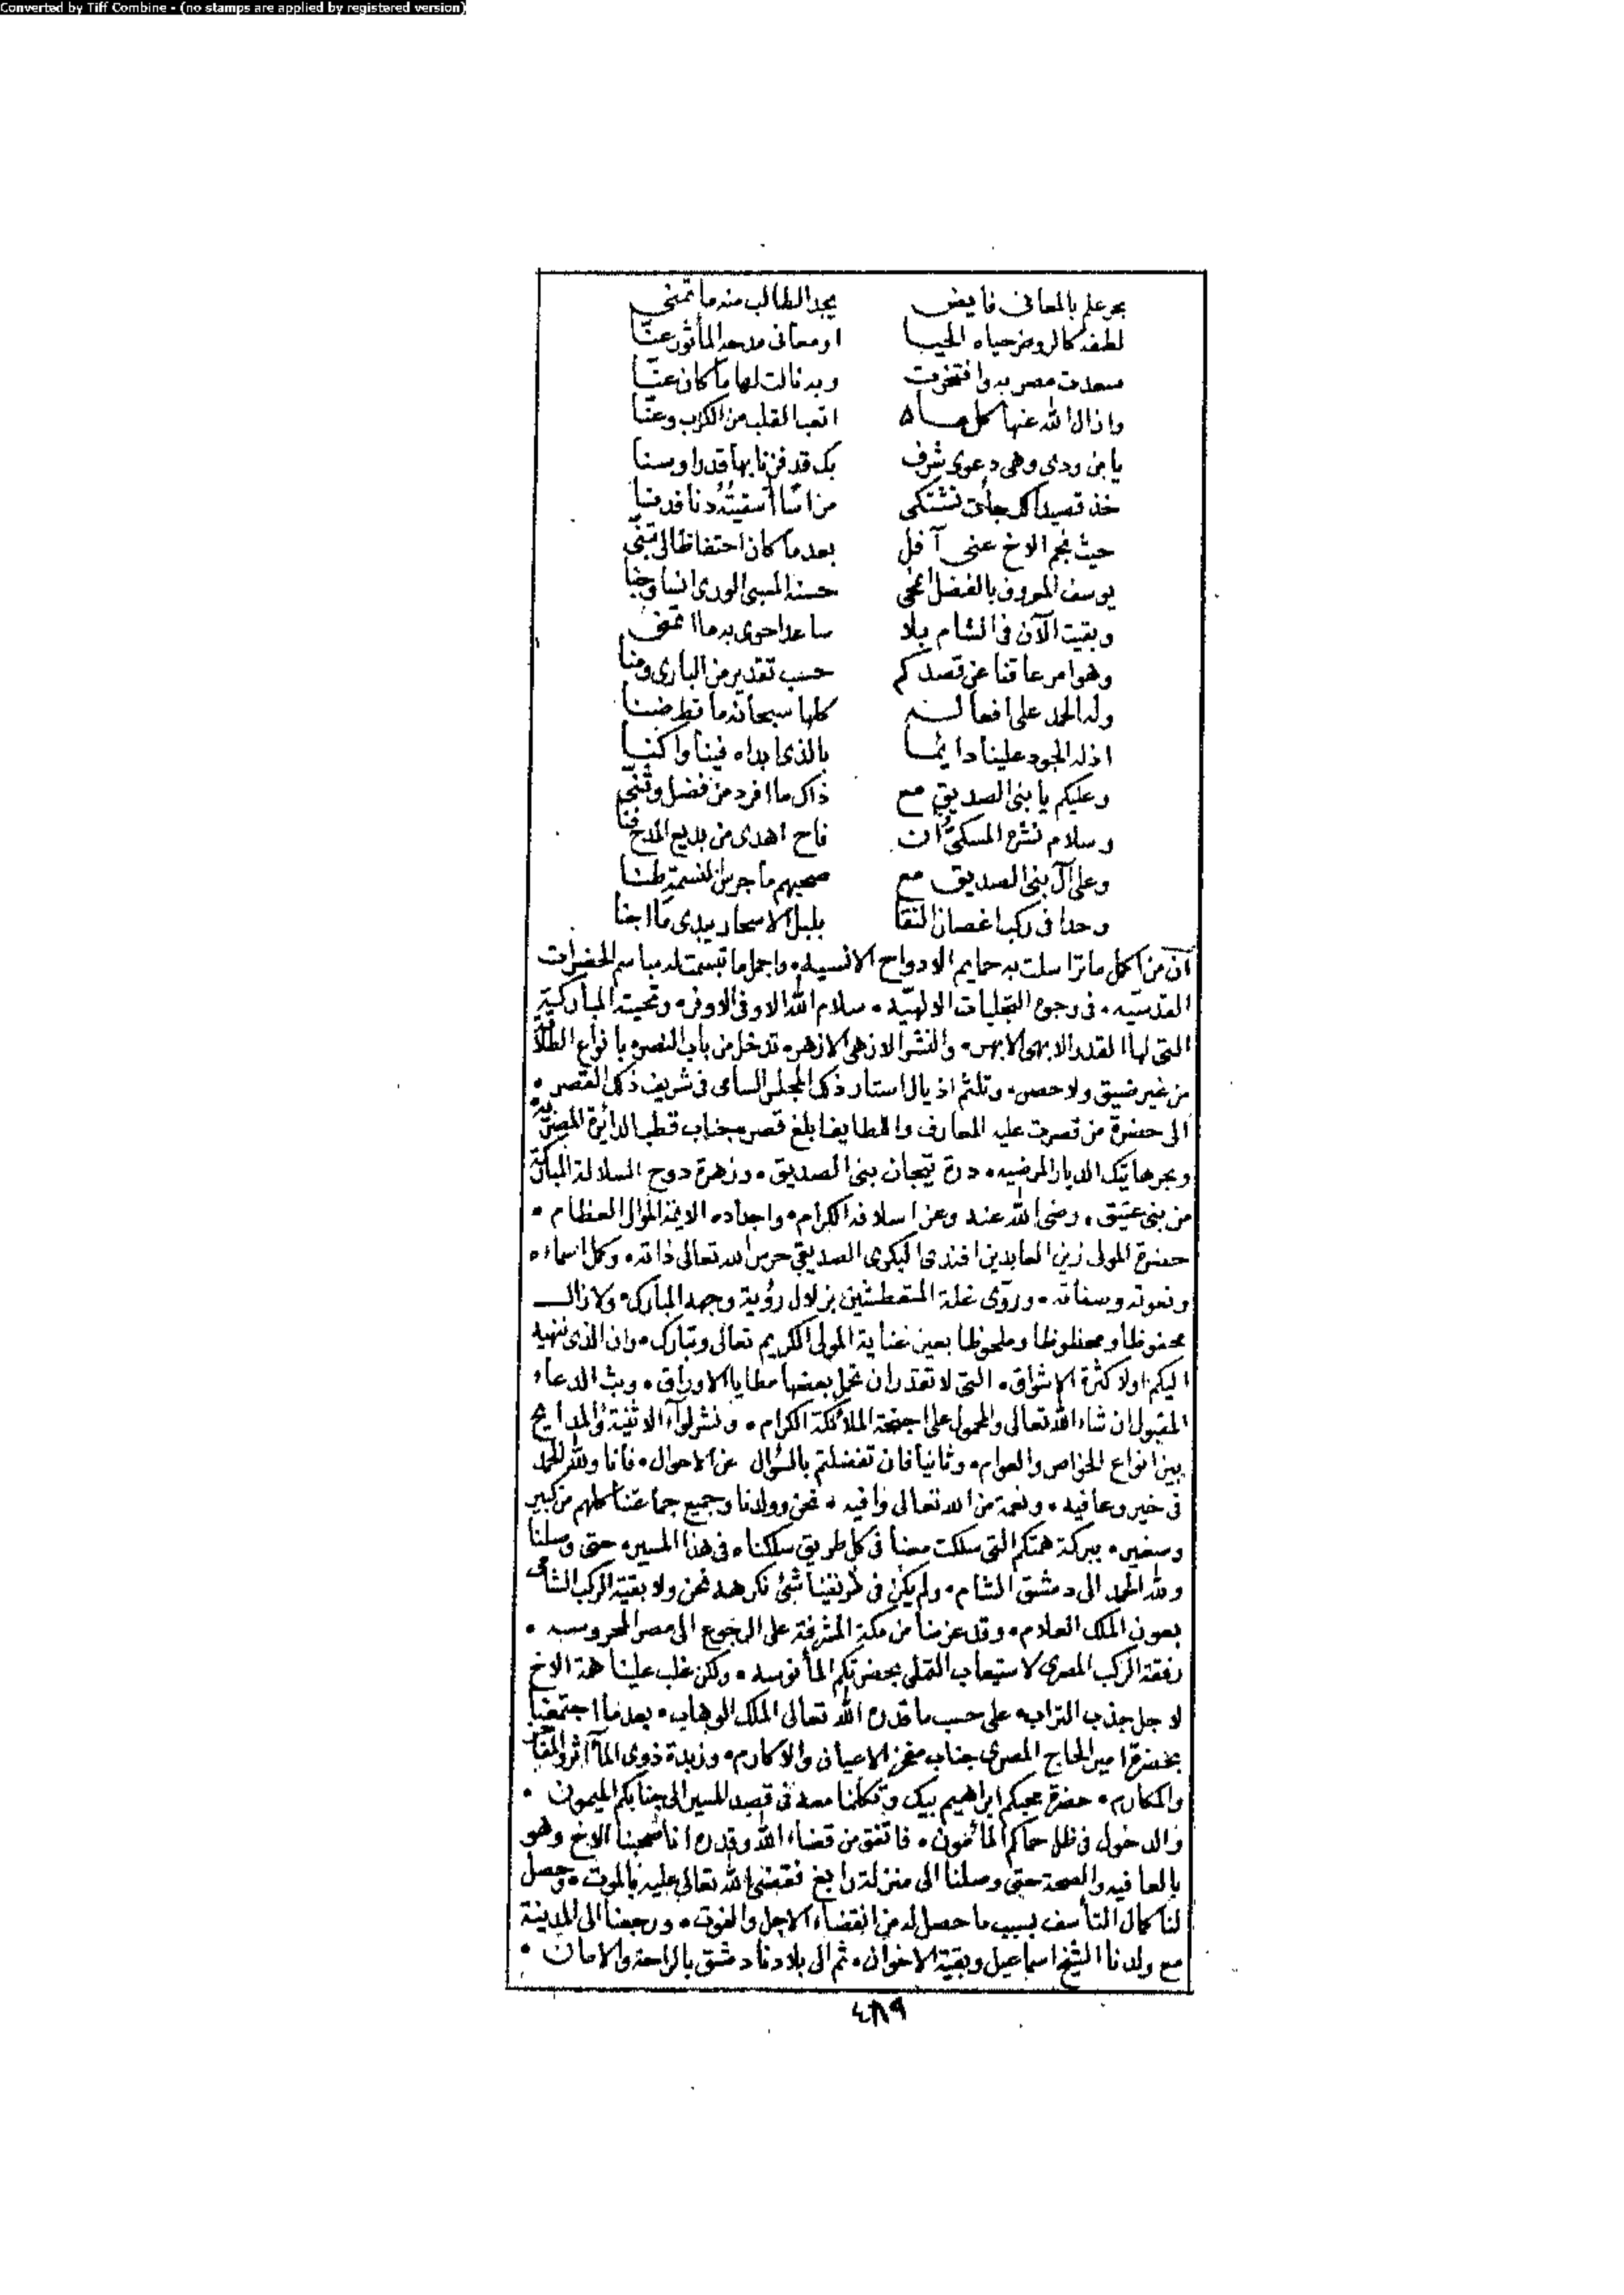 Converted by Tiff Combine - (no stamps are applied by registered version)
بحر علم بالمعانى فايض يجد الطالب منه ما تمنى
لطفه كالروض حياه الحيا او معانى مدحه المأثور عنا
سعدت مصر به وافتخرت وبه نالت لها ما كان عنا
وازال الله عنها كل ما اتعب القلب من الكرب وعنا
يا بن ودى وهى دعوى شرف بك قد فزنا بها قدرا وسنا
خذ قصيدا لك جأت تشتكى من اسًا
حيث نجم الاخ عنى آفل بعد ما كان احتفاظا لى
يوسف المعروف بالفضل اخى حسنه المسبى الورى انسا وجنا
وبقيت الآن فى الشام بلا ساعد احوى به ما اتمنى
وهو امر عاقنا عن قصدكم حسب تقدير من البارى ومنا
وله الحمد على افعاله كلها سبحانه ما قط ضنا
اذ له الجود علينا دايما بالذى ابداه فينا واكنا
وعليكم يا بنى الصديق مع ذاك ما افرد من فضل وثنى
وسلام نشره المسكىّ ان فاح اهدى من بديع المدح فنا
وعلى آل بنى الصديق مع صحبهم ما جرس النسمة طنا
وحدا فى ركب اغصان النقا بلبل الاسحار يبدى ما اجنا
ان من اكمل ما تراسلت به حمايم الادواح الانسيه، واجمل ما تبسمت له مباسم الحضرات
القدسيّه، فى وجوه التجليات الالهيّه، سلام الله الاوفى الاوفر، وتحيته المباركية
التى لها القدر الابهى الابهر، والنشر الازهى الازهر، تدخل من باب النصر، بانواع
من غير ضيق ولا حصر، وتلثم اذيال استار ذلك المجلس السامى فى شريف ذلك القصر،
الى حضرة من قصرت عليه المعارف واللطايف ابلغ قصر، جناب قطب الدائرة المصريه
وبحر هاتيك الديار المرضيه، درة تيجان بنى الصديق، وزهرة دوح السلالة المباركة
من بنى عتيق، رضى الله عنه وعن اسلافه الكرام، واجداده الايمة الموال العظام،
حضرة المولى زين العابدين افندى البكرى الصديقى حرس الله تعالى ذاته، وكمل اسماءه
ونعوته وصفاته، وروّى غلة المتعطشين بزلال رؤية وجهه المبارك، ولا زال
محفوظا ومحظوظا وملحوظا بعين عناية المولى الكريم تعالى وتبارك، وان الذى ننهيه
اليكم اولا كثرة الاشواق، التى لا تقدر ان تحمل بعضها مطايا الاوراق، وبث الدعاء
المقبول ان شاء الله تعالى والمحمول على اجنحة الملائكة الكرام، ونشر لوآء الاثنية والمدايح
بين انواع الخواص والعوام، وثانيا فان تفضلتم بالسؤال عن الاحوال، فانا ولله الحمد
فى خير وعافيه، ونعمة من الله تعالى وافيه، نحن وولدنا وجميع جماعتنا كلهم من كبير
وصغير، ببركة همتكم التى سلكت معنا فى كل طريق سلكناه فى هذا المسير، حتى وصلنا
ولله الحمد الى دمشق الشام، ولم يكن فى طريقنا شئ نكرهه نحن ولا بقية الركب الشامى
بعون الملك العلام، وقد عزمنا من مكة المشرفة على الرجوع الى مصر المحروسه،
رفقة الركب المصرى لاستيعاب التملى بحضرتكم المأنوسه، ولكن غلب علينا همة الاخ
لاجل جذب التراب، على حسب ما قدره الله تعالى الملك الوهاب، بعد ما اجتمعنا
بحضرة امير الحاج المصرى جناب مفخر الاعيان والاكارم، وزبدة ذوى المآثر
والمكارم، حضرة محبكم ابراهيم بيك وتكلمنا معه فى قصد المسير الى جنابكم الميمون،
والدخول فى ظل حماكم المأمون، فاتفق من قضاء الله وقدره انا صحبنا الاخ وهو
بالعافيه والصحة حتى وصلنا الى منزلة رابغ فقضى الله تعالى عليه بالموت، وحصل
لنا كمال التأسف بسبب ما حصل له من انقضاء الاجل والفوت، ورجعنا الى المدينة
مع ولدنا الشيخ اسماعيل وبقية الاخوان، ثم الى بلادنا دمشق بالراحة والامان،